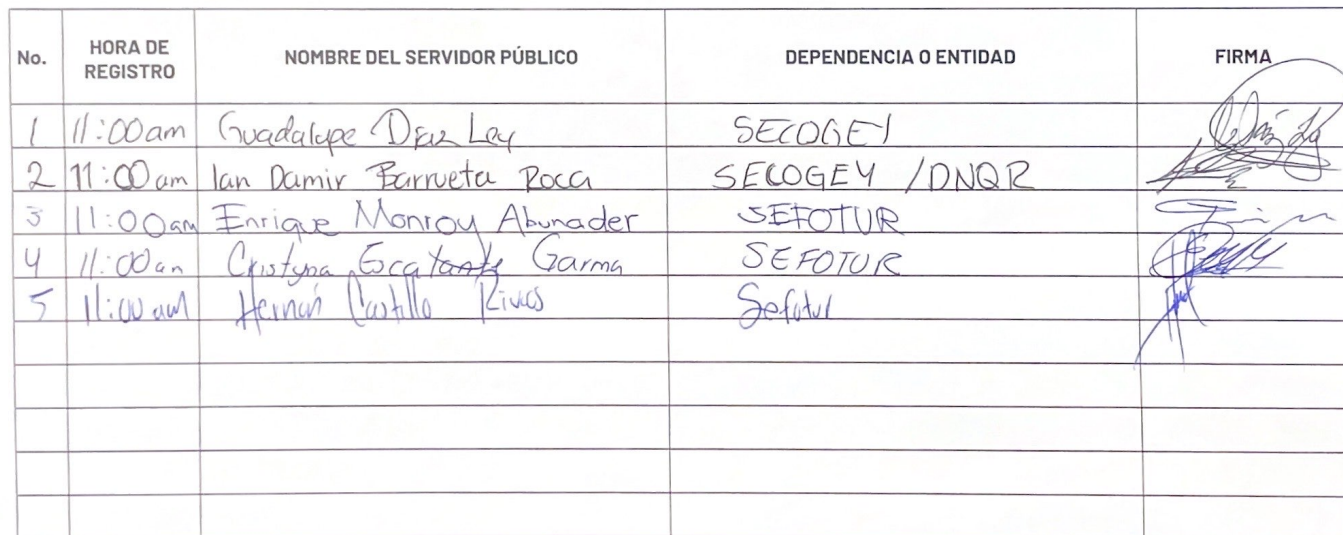 No. HORA DE REGISTRO NOMBRE DEL SERVIDOR PÚBLICO DEPENDENCIA O ENTIDAD FIRMA
1 11:00am Guadalupe Díaz Ley SECOGEY
2 11:00 am Ian Damir Barrueta Roca SECOGEY /DNQR
3 11:00am Enrique Monroy Abunader SEFOTUR
4 11:00 am Cristyna Escalante Garma SEFOTUR
5 11:00 am Hernán Castillo Rivas Sefotur